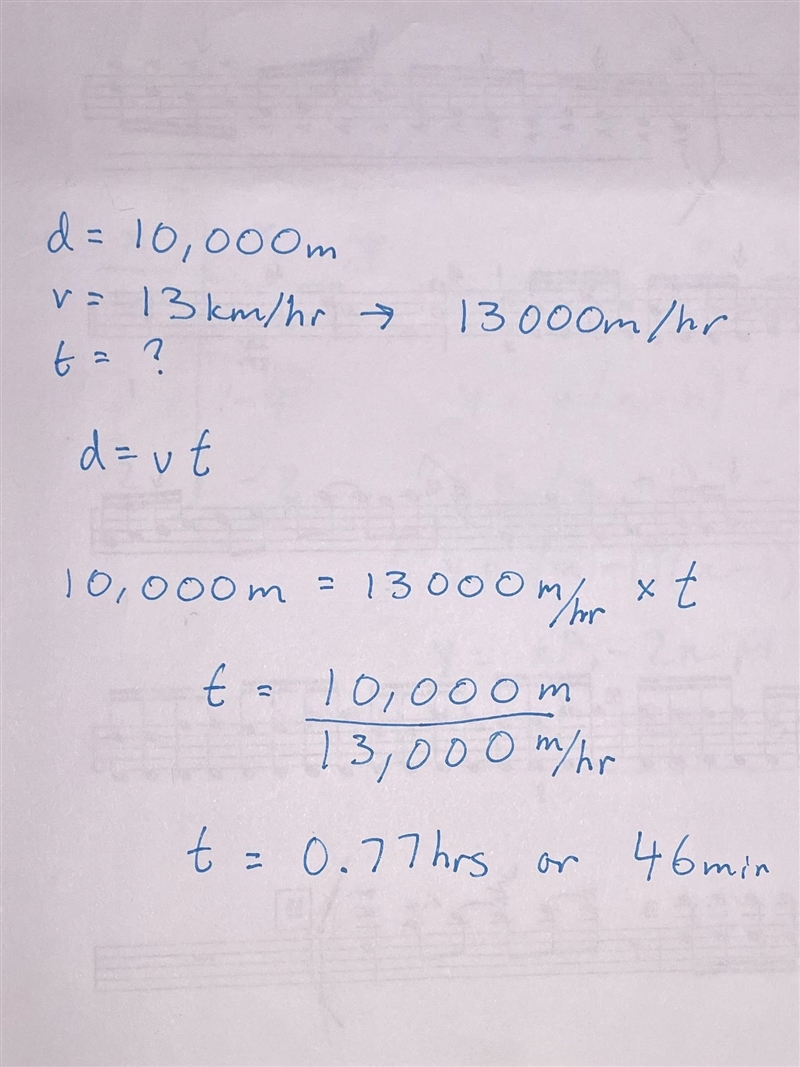 d = 10,000m
v = 13km/hr → 13000m/hr
t = ?
d = vt
10,000m = 13000m/hr × t
t = 10,000m
13,000 m/hr
t = 0.77hrs or 46min